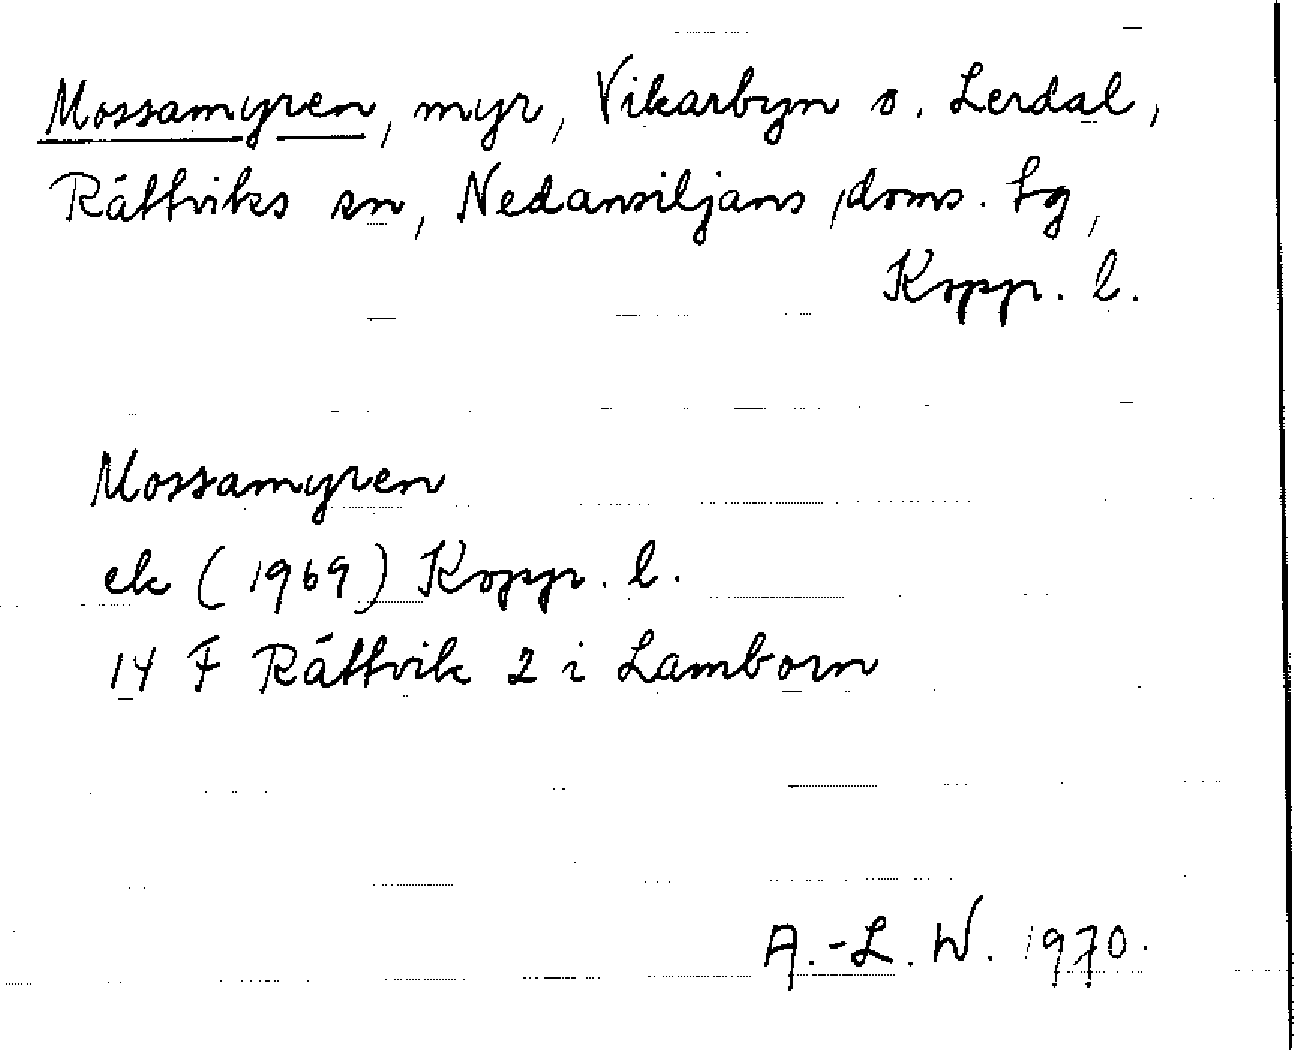 Mossamyren, myr, Vikarbyn o. Lerdal,
Rättviks sn, Nedansiljans doms. tg,
Kopp. l.
Mossamyren
ek (1969) Kopp. l.
14 F Rättvik 2 i Lamborn
A.-L. W. 1970.